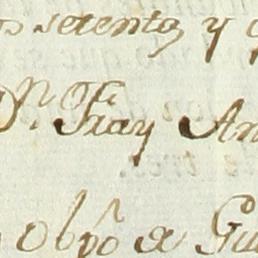 setenta y
Dn. Fray An
Obpo de Gu